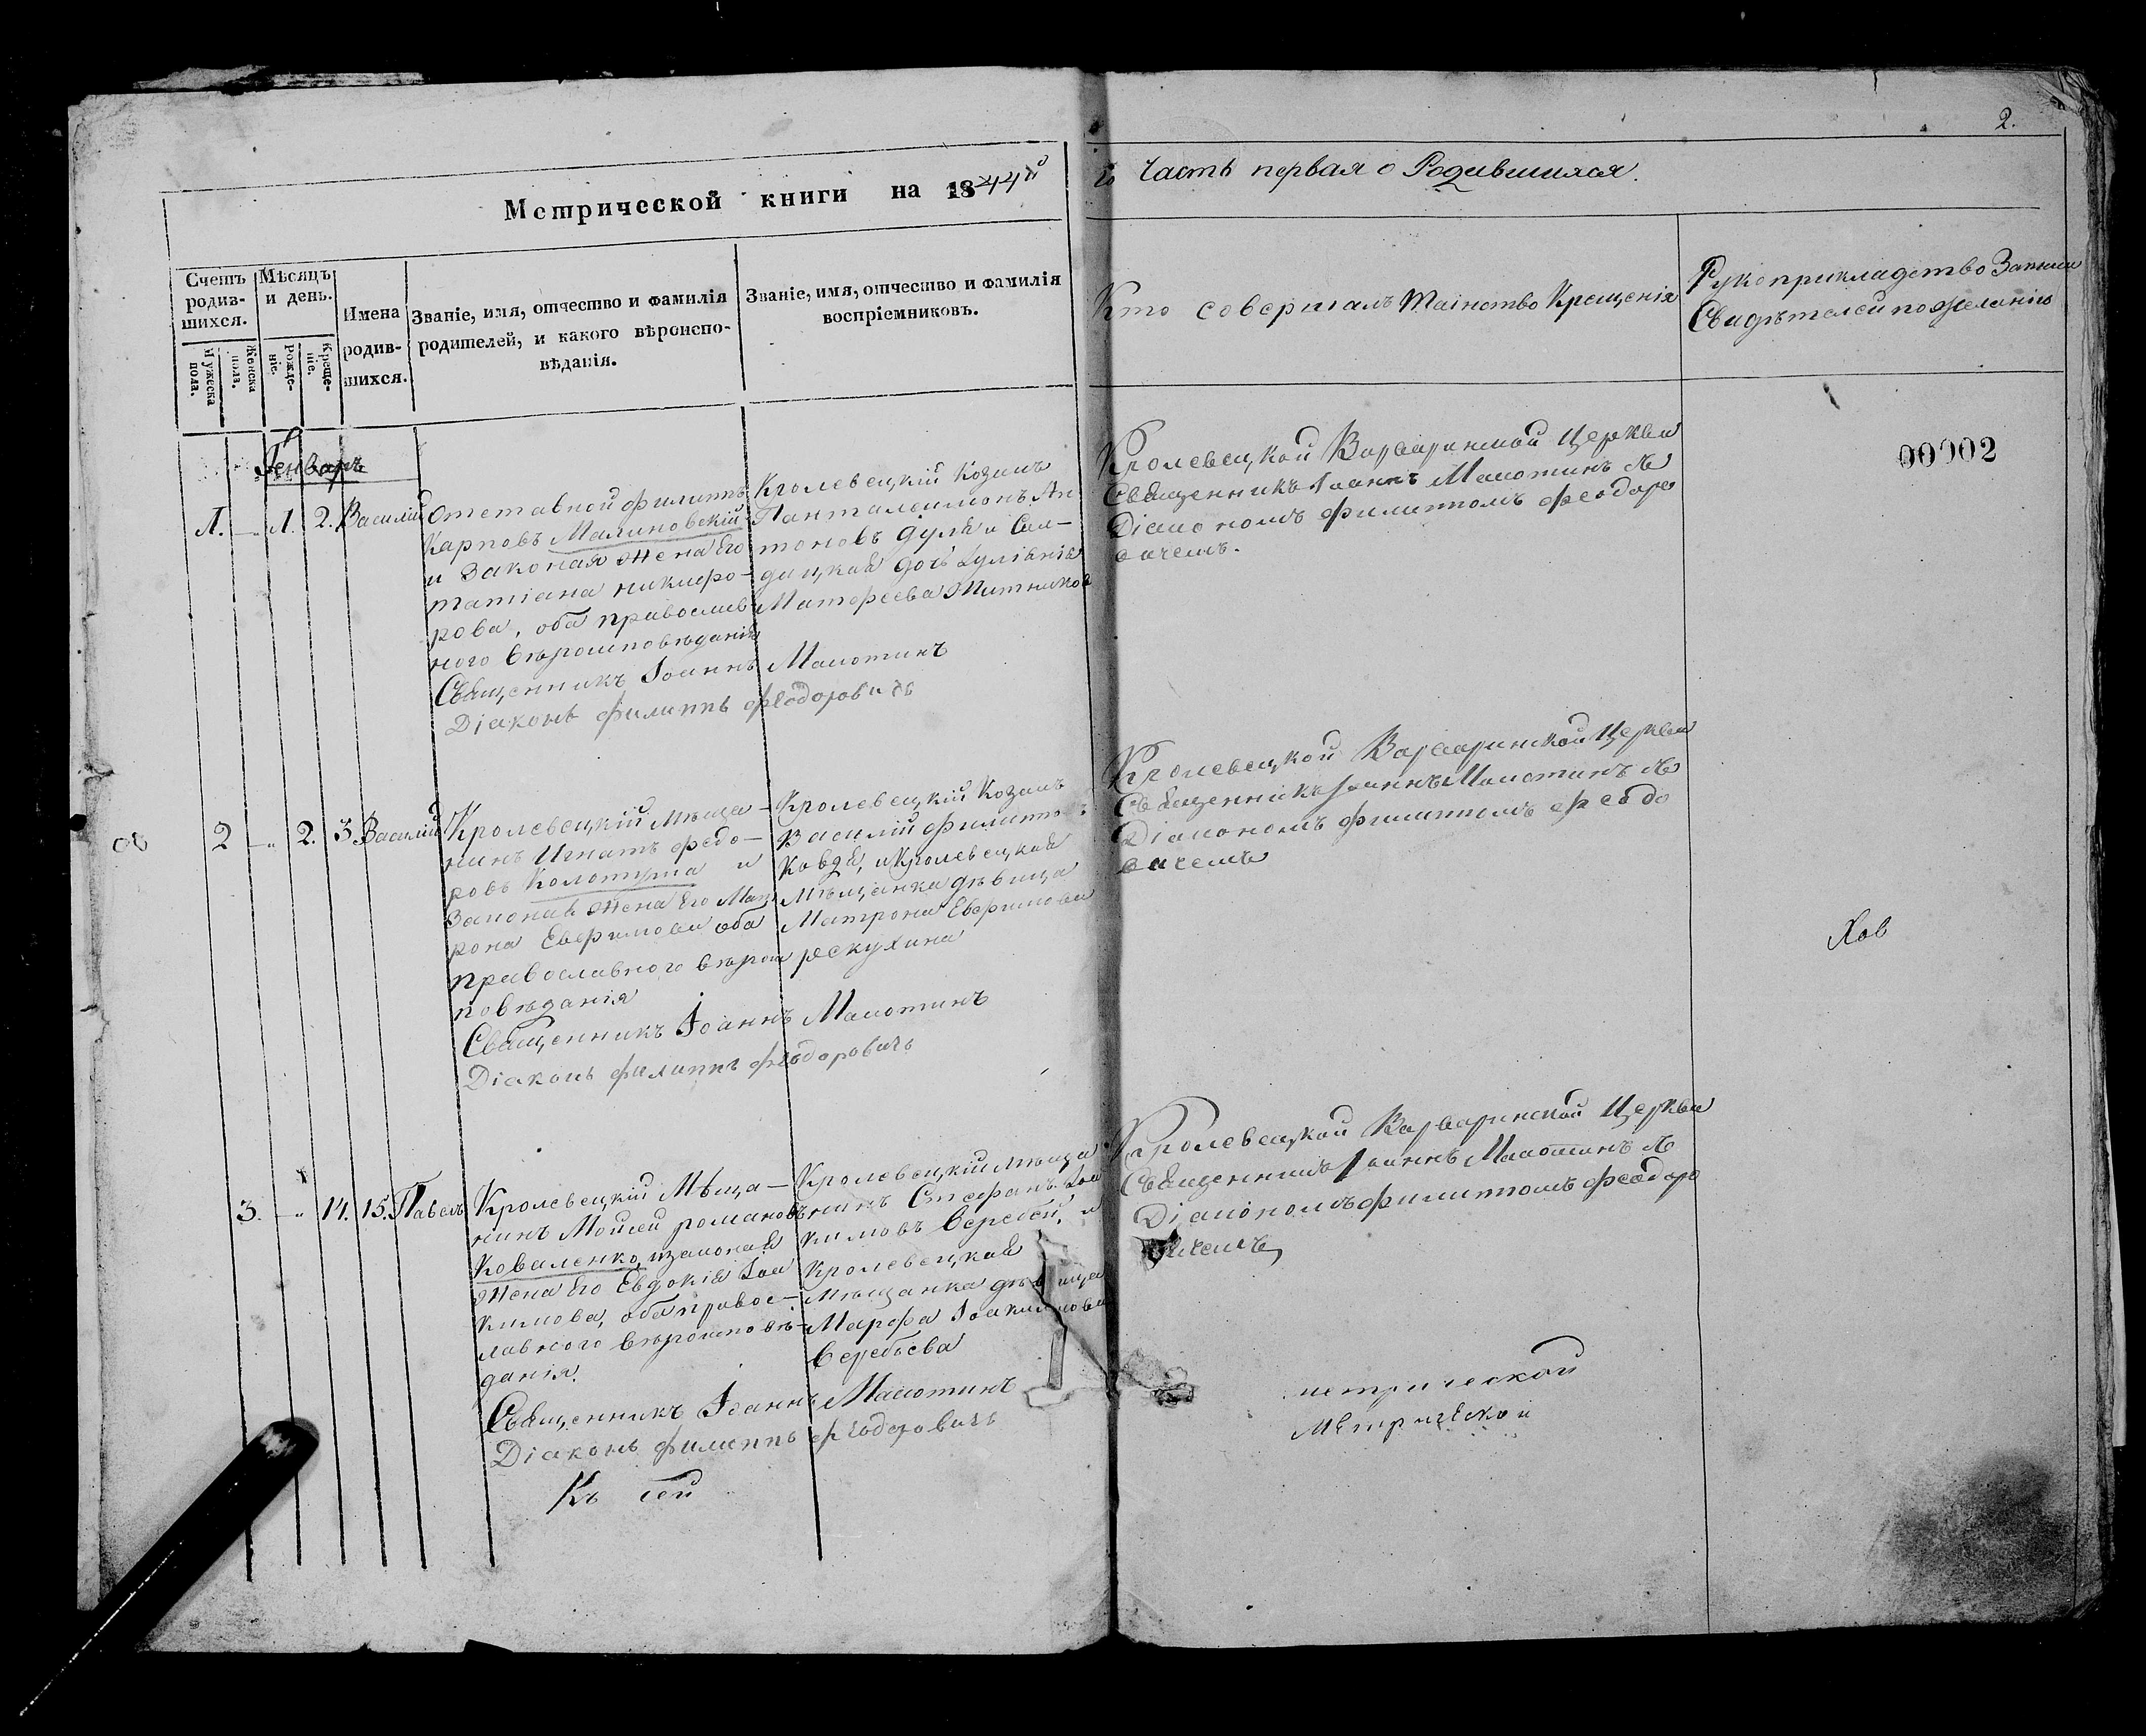 2.
Метрической книги на 1844й
го Часть первая о Родившихся.
Счетъ родив-шихся.
Мужеска пола.
Женска пола.
Мѣсяцъ и день.
Рожде-ніе.
Креще-ніе.
Имена родив-шихся.
Званіе, имя, отчество и фамилія
родителей, и какого вѣроиспо-
вѣданія.
Званіе, имя, отчество и фамилія
воспріемниковъ.
Кто совершалъ таинство Крещенія
Рукоприкладство
Свидѣтелей по желанію
00002
Генварь
1. 1. 2. Василій
Отставной филиппъ
Карповъ Малиновскій
и Законая жена Его
татіана никифо-
рова, оба православ
ного вѣроисповѣданія
Священникъ Іоаннъ
Діаконъ филиппъ феодоровичъ
Кролевецкій Козакъ
Панталеимонъ Ан
тоновъ
дочь
Кролевецкой Варваринской Церкви
Священникъ Іоаннъ
Діакономъ филиппомъ феодоро
вичемъ.
2 2. 3. Василій
Кролевецкій Мѣща-
нинъ Игнатъ федо-
ровъ и
Законая жена Его Мат
рона Евфимова оба
православного вѣроис
повѣданія
Священникъ Іоаннъ
Діаконъ филиппъ феодоровичъ
Кролевецкій Козакъ
Василій филиппо
и Кролевецкая
Мѣщанка дѣвица
Матрона Евфимова
Кролевецкой Варваринской Церкви
Священникъ Іоаннъ
Діакономъ филиппомъ феодо
вичемъ
3. 14. 15. Павелъ
Кролевецкій Мѣща-
нинъ Моисей романовъ
Коваленко, и законая
жена Его Евдокія Іоа
кимова, оба правос-
лавного вѣроисповѣ-
данія.
Священникъ Іоаннъ
Діаконъ филиппъ феодоровичъ
Къ сей
Кролевецкій мѣща
нинъ Стефанъ Іоа
кимовъ Веребей, и
Кролевецкая
Мѣщанка дѣвица
Марфа Іоакимова
Веребьева
Кролевецкой Варваринской Церкви
Священникъ Іоаннъ
Діакономъ филиппомъ феодоро
вичемъ
метрической
Метрической